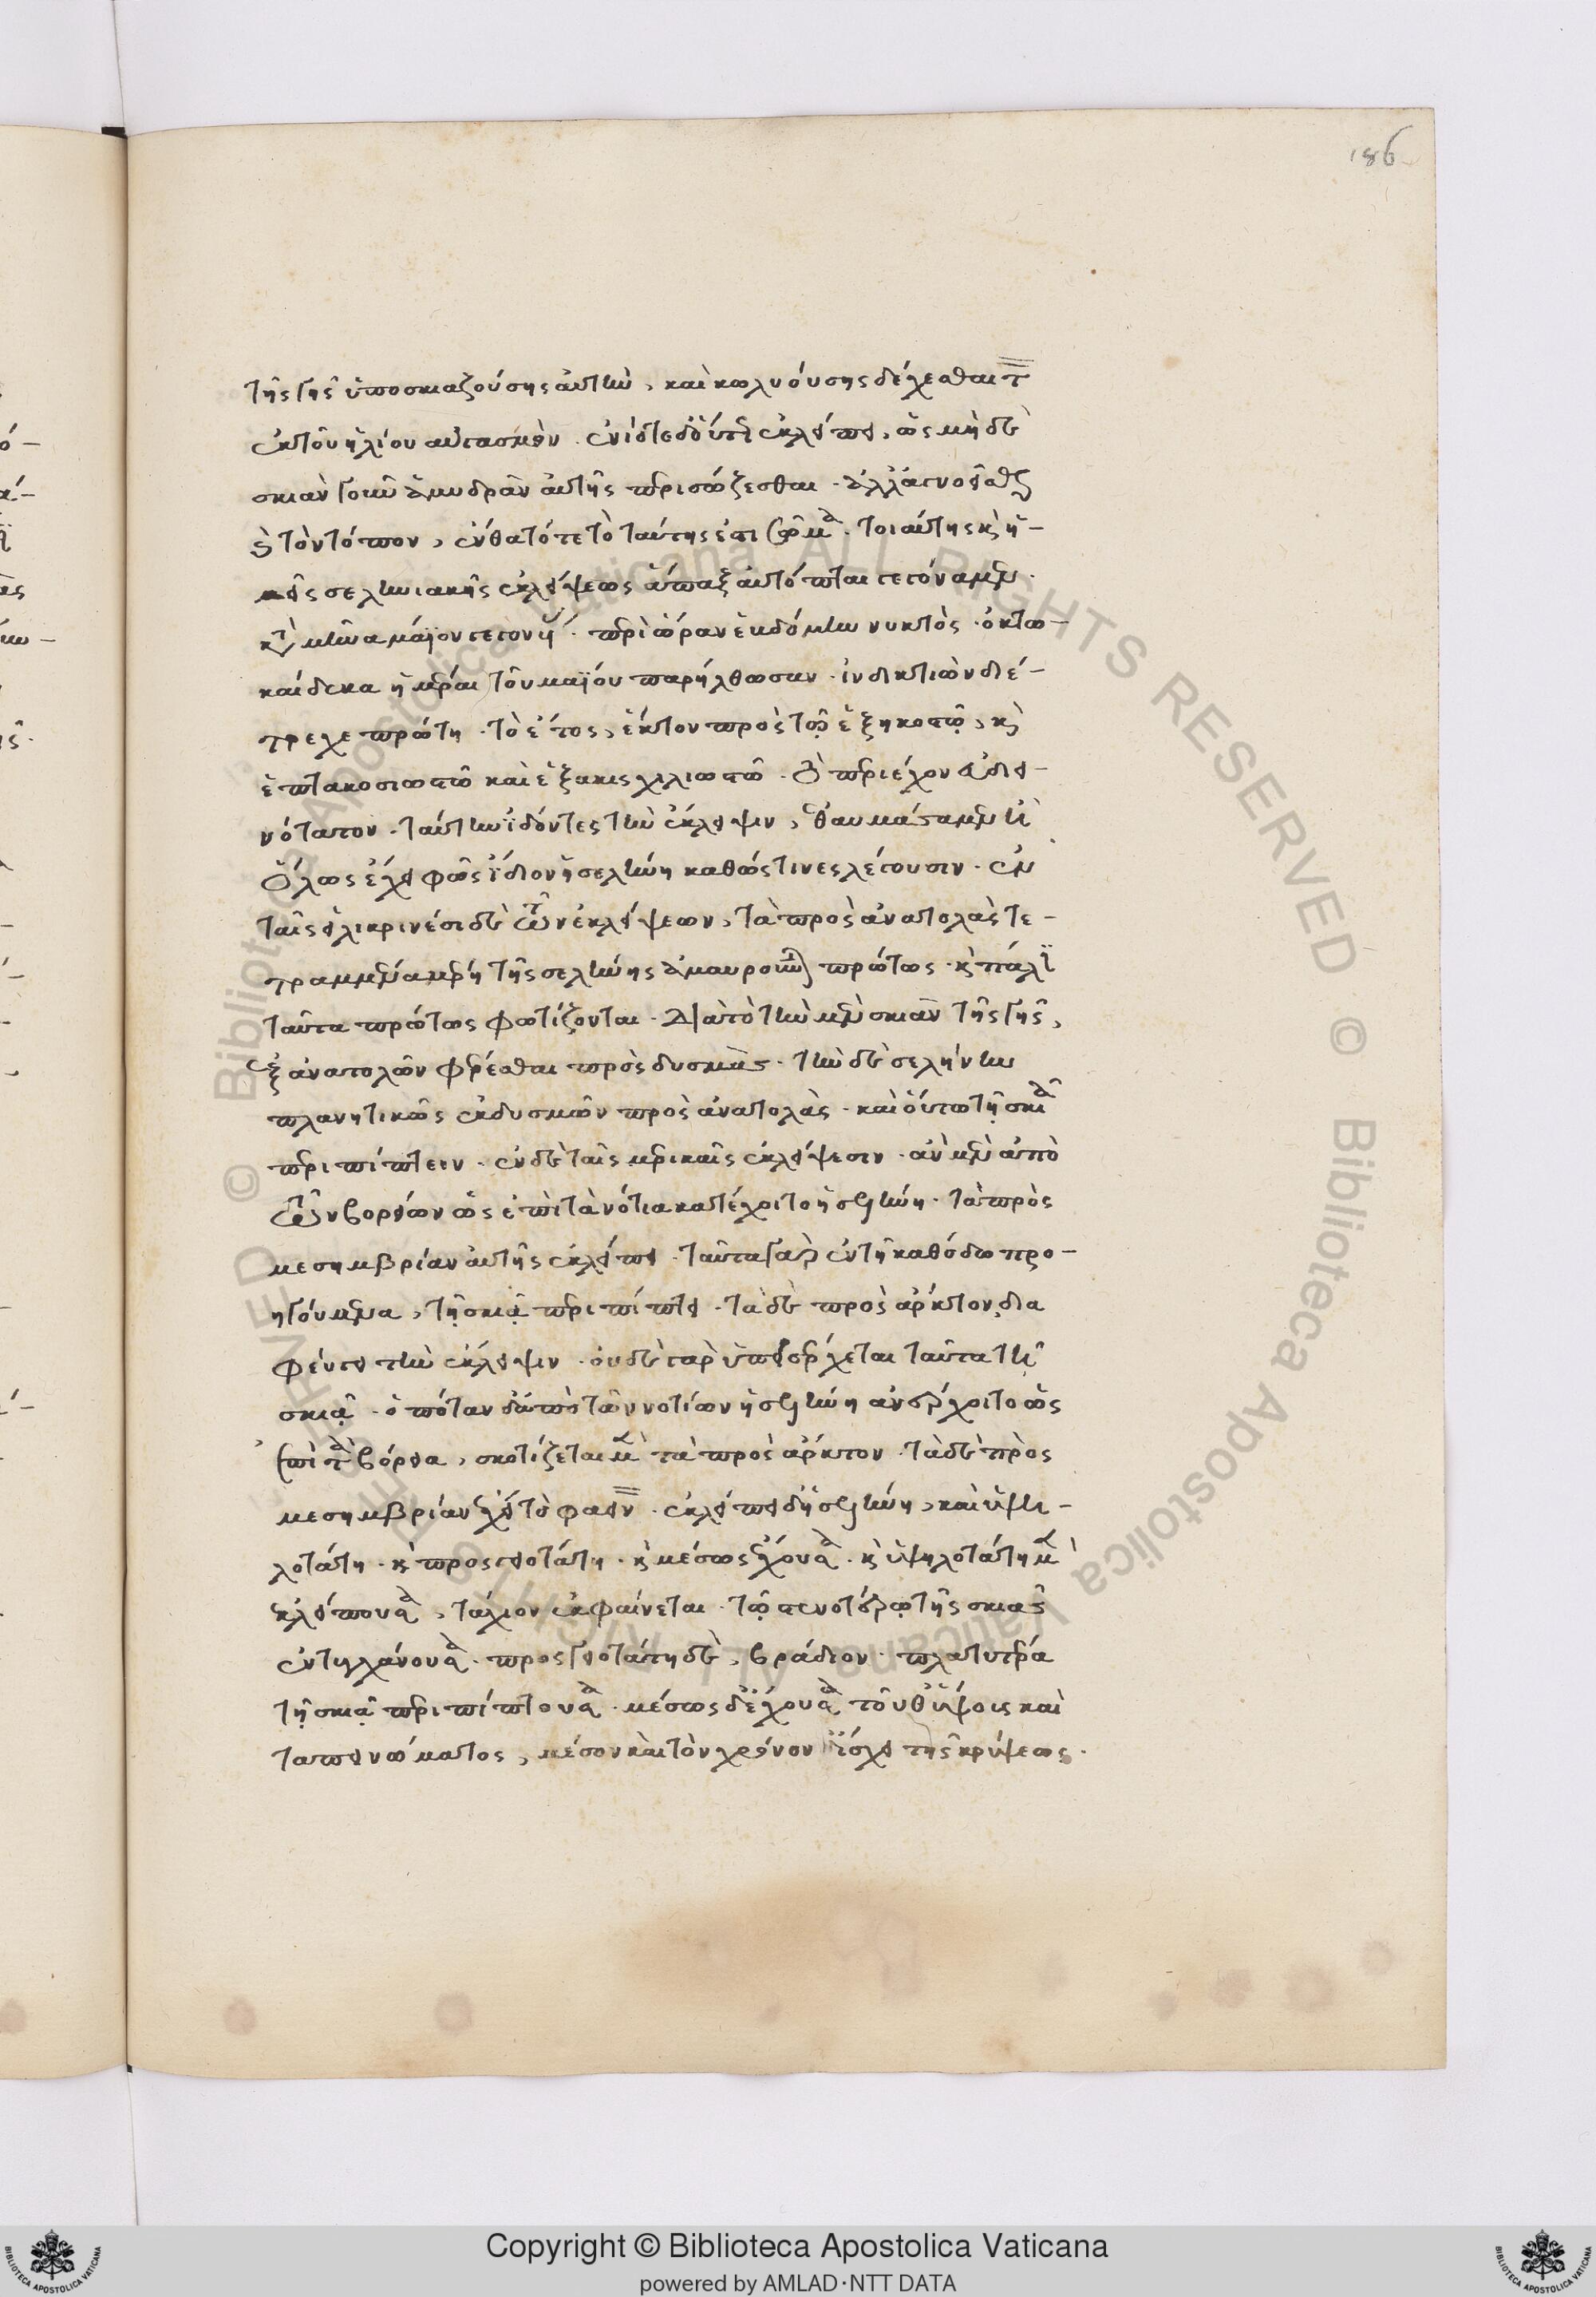 186
τῆς γῆς ὑποσκιαζούσης αὐτὴν, καὶ κωλυούσης δέχεσθαι τ
ἐκ τοῦ ἡλίου αὐγασμόν. ἐνίοτε δ' οὕτως ἐκλείπει, ὡς μὴ δὲ
σκιὰν γοῦν ἀμυδρὰν αὐτῆς περισώζεσθαι. ἀλλ' ἀγνοεῖσθαι
καὶ τὸν τόπον, ἔνθα τότε τὸ ταύτης ἐστὶ σῶμα. τοιαύτης καὶ ἡ-
μεῖς σεληνιακῆς ἐκλείψεως ἅπαξ αὐτόπται γεγόναμεν.
κατὰ μῆνα μάϊον γεγονυίας. περὶ ὥραν ἑβδόμην νυκτὸς. ὀκτω-
καίδεκα ἡμέραι τοῦ μαΐου παρήλθωσαν. ἰνδικτιὼν δὲ ἔ-
τρεχε πρώτη. τὸ ἔτος, ἕκτον πρὸς τῷ ἑξηκοστῷ, καὶ
ἑπτακοσιοστῶ καὶ ἑξακισχιλιοστῶ.
νότατον. ταύτην ἰδόντες τὴν ἔκλειψιν, ἐθαυμάσαμεν εἰ
ὅλως ἔχει φῶς ἴδιον ἡ σελήνη καθώς τινες λέγουσιν. ἐν
ταῖς εἰλικρινέσι δὲ τῶν ἐκλείψεων, τὰ πρὸς ἀνατολὰς τε-
τραμμένα μέρη τῆς σελήνης ἀμαυροῦνται πρώτως. καὶ πάλιν
ταῦτα πρώτως φωτίζονται. διὰ τὸ τὴν μὲν σκιὰν τῆς γῆς,
ἐξ ἀνατολῶν φέρεσθαι πρὸς δυσμὰς. τὴν δὲ σελήνην
πλανητικῶς ἐκ δυσμῶν πρὸς ἀνατολὰς. καὶ οὕτω τῇ σκιᾷ
περιπίπτειν. ἐν δὲ ταῖς μερικαῖς ἐκλείψεσιν. ἂν μὲν ἀπὸ
τῶν βορείων ὡς ἐπὶ τὰ νότια κατέρχοιτο ἡ σελήνη. τὰ πρὸς
μεσημβρίαν αὐτῆς ἐκλείπει. ταῦτα γὰρ ἐν τῇ καθόδω προ-
ηγούμενα, τῇ σκιᾷ περιπίπτει. τὰ δὲ πρὸς ἄρκτον, δια
φεύγει τὴν ἔκλειψιν. οὐδὲ γὰρ ὑπεισέρχεται ταῦτα τῇ
σκιᾷ. ὁπόταν δ' ἀπὸ τῶν νοτίων ἡ σελήνη ἀνέρχοιτο ὡς
ἐπὶ τὰ βόρεια, σκοτίζεται μὲν τὰ πρὸς ἄρκτον. τὰ δὲ πρὸς
μεσημβρίαν ἔχει τὸ φαεινόν. ἐκλείπει δ' ἡ σελήνη, καὶ ὑψη-
λοτάτη. καὶ προσγειοτάτη. καὶ μέσως ἔχουσα. καὶ ὑψηλοτάτη μὲν
ἐκλείπουσα, τάχιον ἐκφαίνεται. τῷ στενοτέρῳ τῆς σκιᾶς
ἐντυγχάνουσα. προσγειοτάτη δὲ, βράδιον. πλατυτέρα
τῇ σκιᾷ περιπίπτουσα. μέσως δ' ἔχουσα τοῦ θ' ὕψους καὶ
ταπεινώματος, μέσον καὶ τὸν χρόνον ἴσχει τῆς κρύψεως.
Copyright © Biblioteca Apostolica Vaticana
powered by AMLAD·NTT DATA